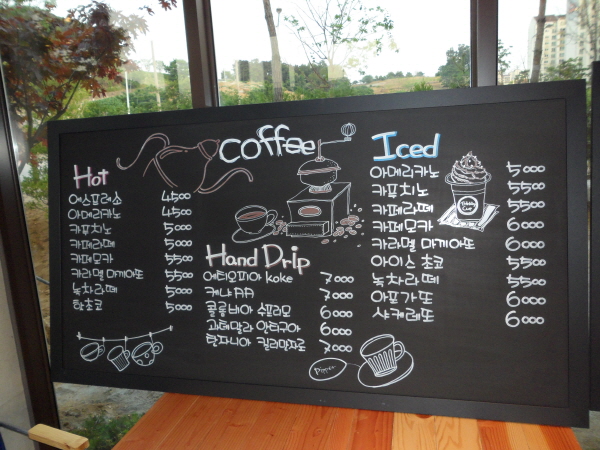 Coffee
Hot
에스프레소 4500
아메리카노 4500
카푸치노 5000
카페라떼 5000
카페모카 5500
카라멜 마끼아또 5500
녹차라떼 5000
핫초코 5000
Hand Drip
에티오피아 koke 7000
케냐AA 7000
콜롬비아 수프리모 6000
과테말라 안티구아 6000
탄자니아 킬리만자로 7000
Iced
아메리카노 5000
카푸치노 5500
카페라떼 5500
카페모카 6000
카라멜 마끼아또 6000
아이스 초코 5500
녹차라떼 5500
아포가또 6000
샤케레또 6000